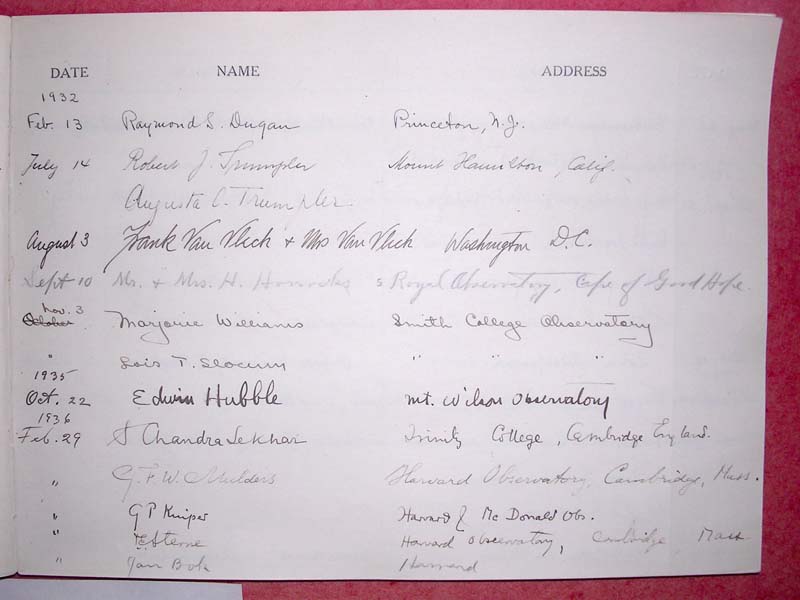 DATE NAME ADDRESS
1932
Feb. 13 Raymond S. Dugan Princeton, N.J.
July 14 Robert J. Trumpler Mount Hamilton, Calif.
Augusta C. Trumpler
August 3 Frank Van Vleck + Mrs Van Vleck Washington D.C.
Sept 10 Mr. & Mrs. H. Horrocks Royal Observatory, Cape of Good Hope
Nov. 3
October Marjorie Williams Smith College Observatory
" Lois T. Slocum " " "
1935
Oct. 22 Edwin Hubble Mt. Wilson Observatory
1936
Feb. 29 S Chandrasekhar Trinity College, Cambridge England.
" G. F. W. Mulders Harvard Observatory, Cambridge, Mass.
" G P Kuiper Harvard & McDonald Obs.
" Sterne Harvard Observatory, Cambridge Mass
" Jan Bok Harvard